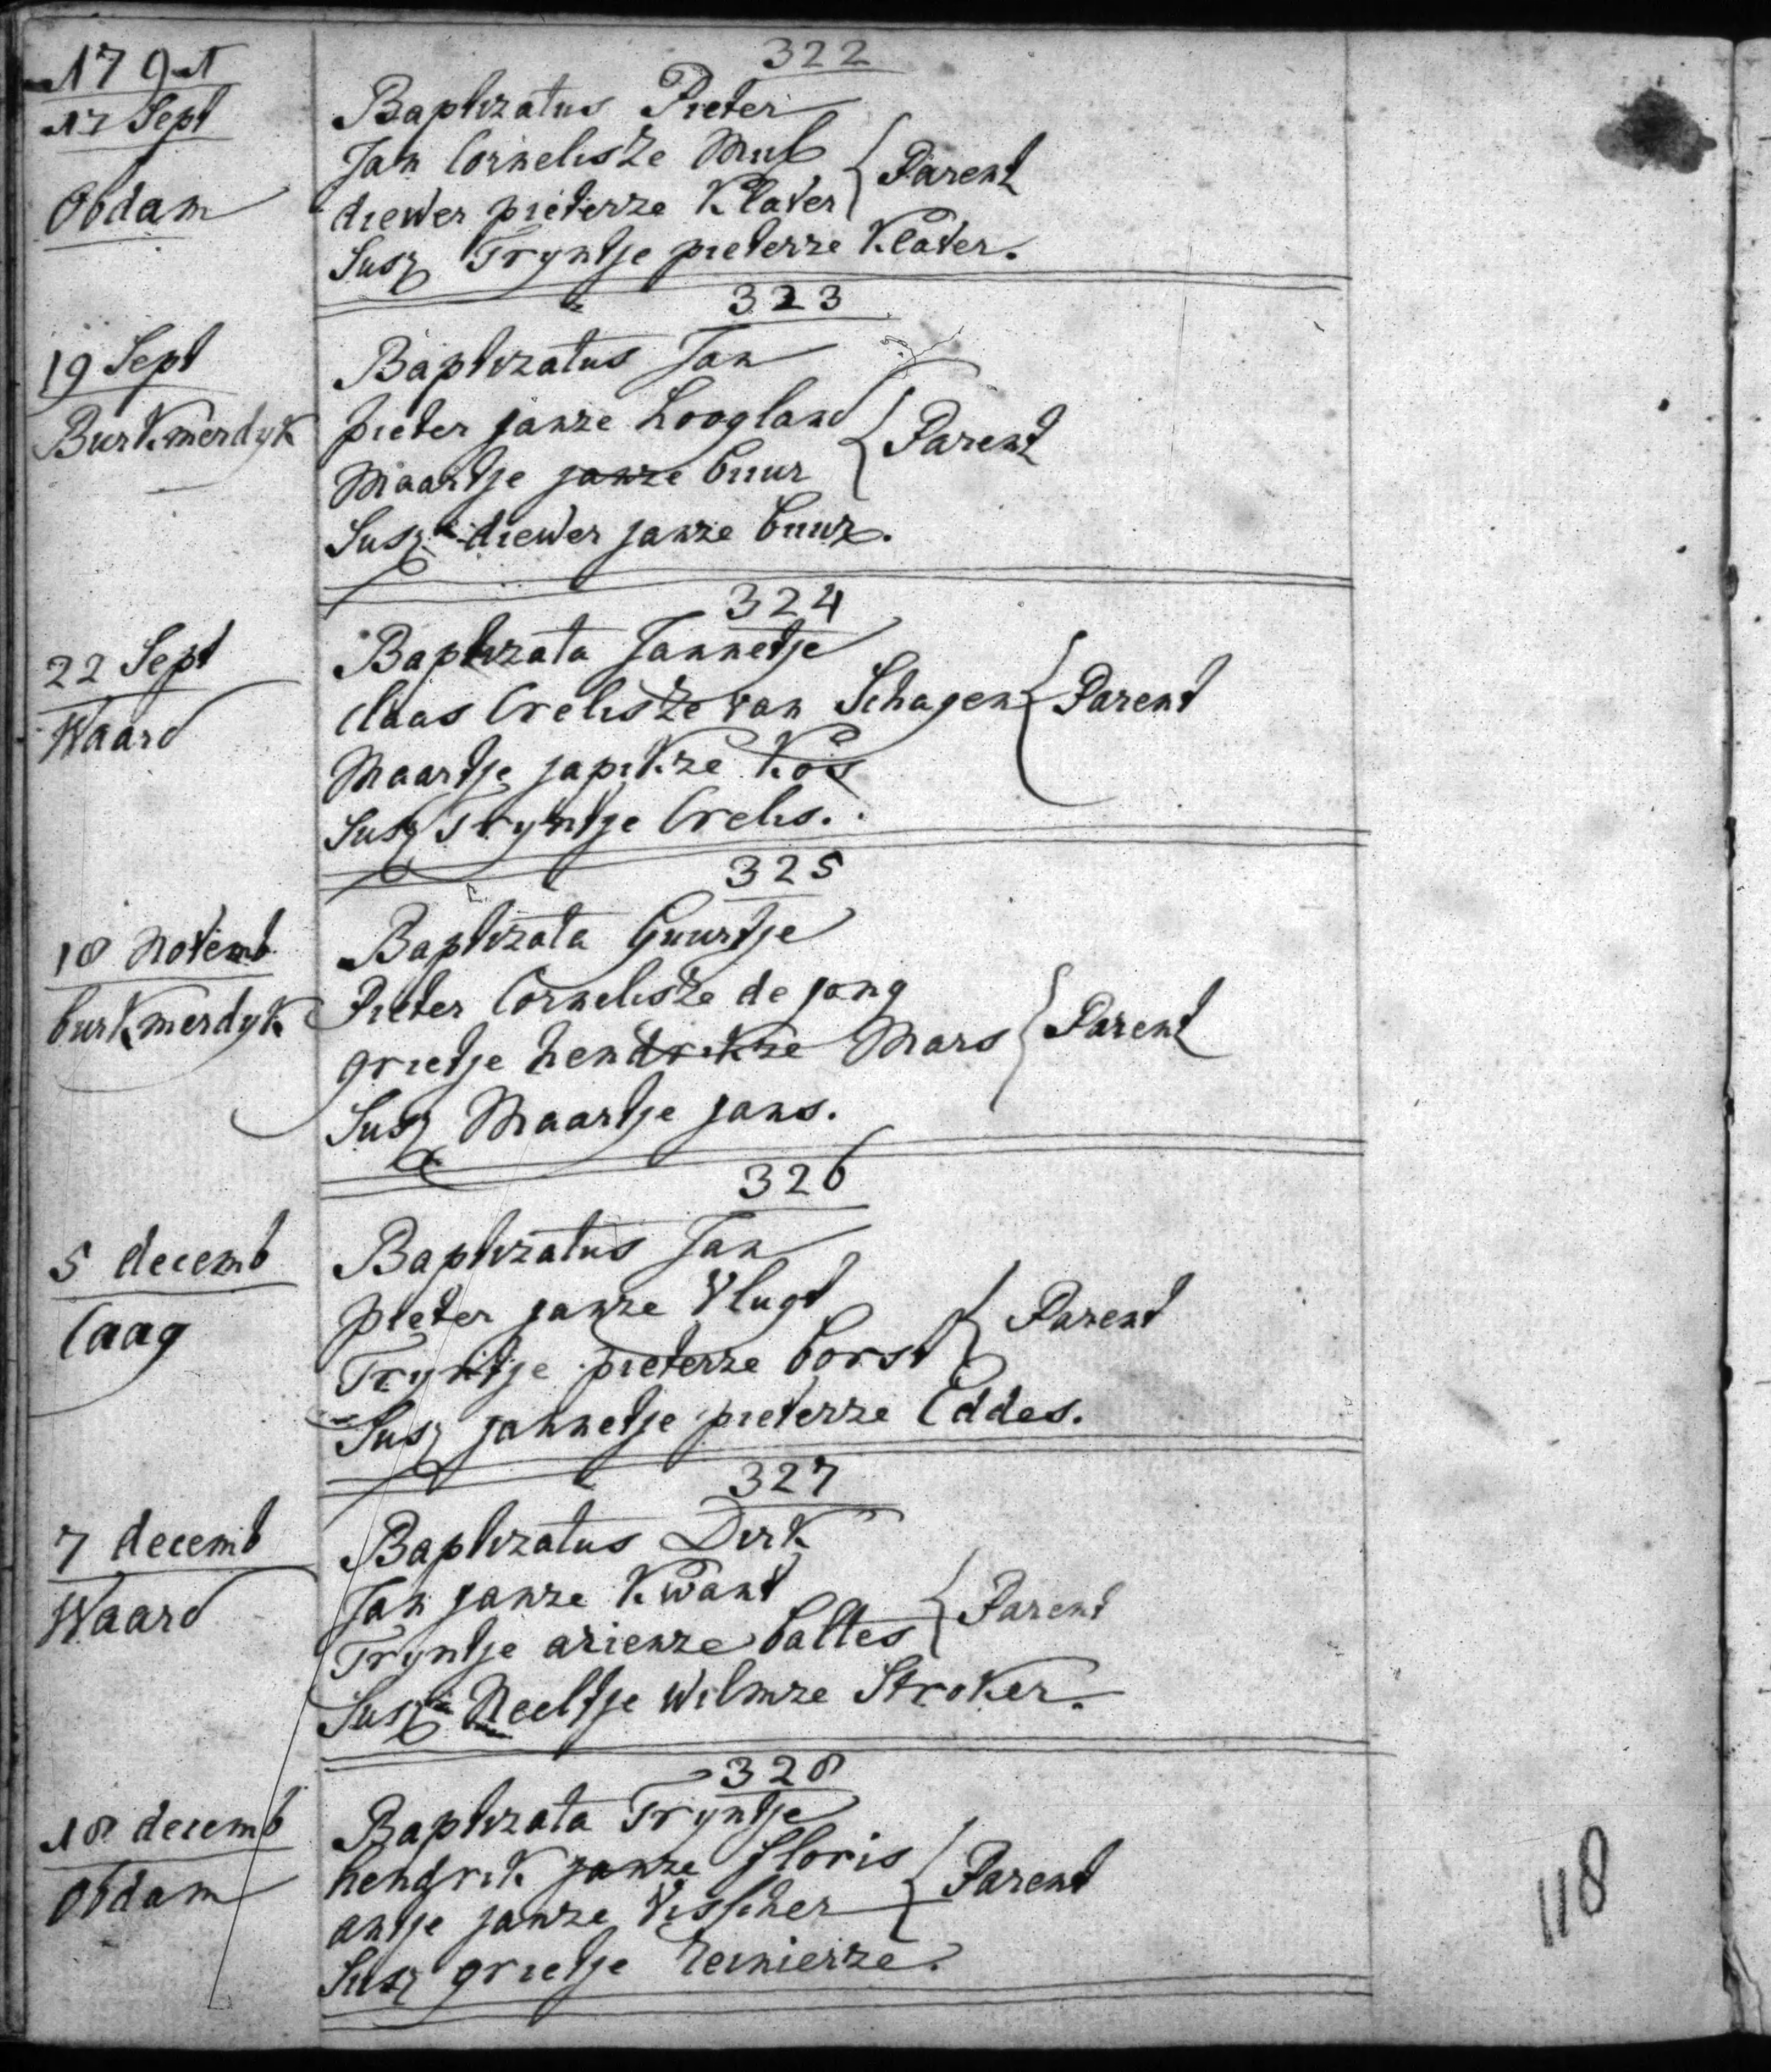 1791
322
17 Sept
Baptizatus Pieter
Jan Cornelisze Mul
Parent
Obdam
diewer pieterze Klaver
Susz Tryntje pieterze Klaver.
323
19 Sept
Baptizatus Jan
Burkmerdyk
pieter janze Hoogland
Parent
Maartje janze buur
Susz diewer janze buur.
324
22 Sept
Baptizata Jannetje
Waard
Claas Crelisze van Schagen
Parent
Maartje japikze Kos
Susz Tryntje Crelis.
325
18 Novemb
Baptizata Guurtje
burkmerdyk
Pieter Cornelisze de jong
Parent
grietje hendrikze Mars
Susz Maartje jans.
326
5 decemb
Baptizatus Jan
Caag
pieter janze Vlugt
Parent
Tryntje pieterze borst
Susz jannetje pieterze Eddes.
327
7 decemb
Baptizatus Dirk
Waard
Jan janze Kwant
Parent
Tryntje arienze baltes
Susz Neeltje Wilmze Stroker.
328
18 decemb
Baptizata Tryntje
Obdam
hendrik janze floris
Parent
antje janze Visscher
Susz grietje reinierze.
118